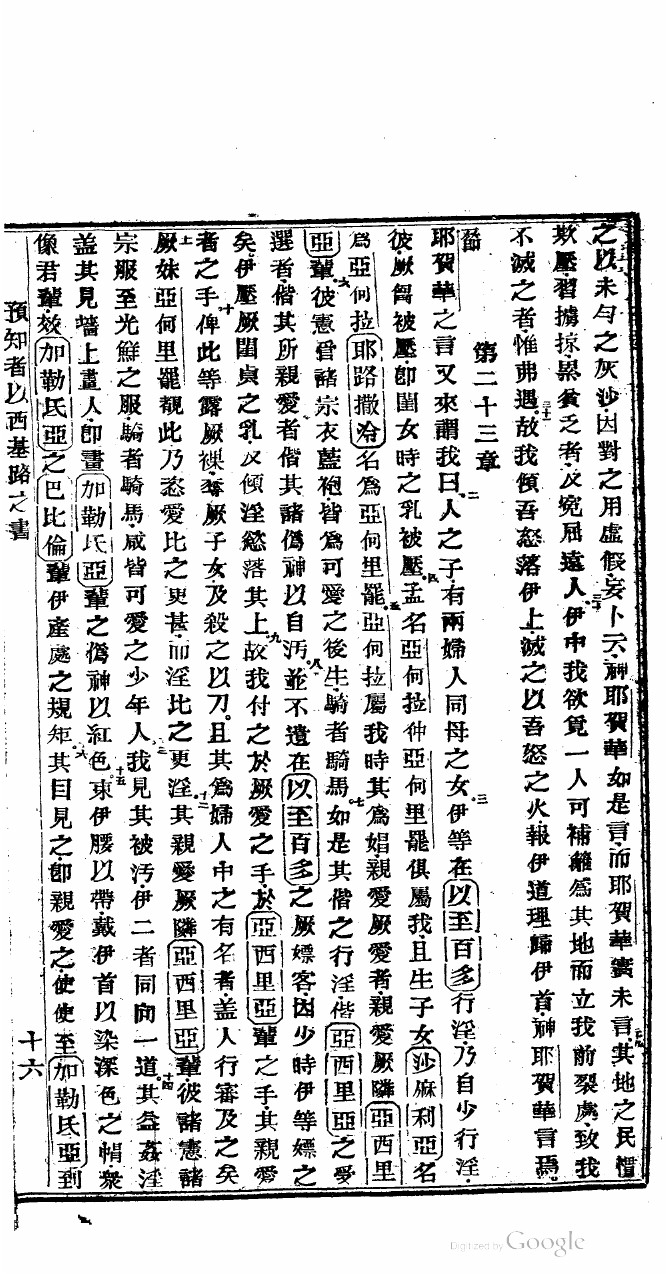 之以未勻之灰沙因對之用虛假妄卜云神耶賀華如是言而耶賀華實未言其地之民慣
欺壓習擄掠累貧乏者及寃屈遠人伊中我欲覓一人可補籬為其地而立我前裂處致我
不滅之者惟弗遇故我傾吾怒落伊上滅之以吾怒之火報伊道理歸伊首神耶賀華言焉
第二十三章
耶賀華之言又來謂我曰人之子有兩婦人同母之女伊等在以至百多行淫乃自少行淫
彼厥胷被壓卽閨女時之乳被壓孟名亞何拉仲亞何里罷俱屬我且生子女沙麻利亞名
為亞何拉耶路撒冷名為亞何里罷亞何拉屬我時其為娼親愛厥愛者親愛厥隣亞西里
亞輩彼憲督諸宗衣藍袍皆為可愛之後生騎者騎馬如是其偕之行淫偕亞西里亞之受
選者偕其所親愛者偕其諸偽神以自汚並不遺在以至百多之厥嫖客因少時伊等嫖之
矣伊壓厥閨貞之乳及傾淫慾落其上故我付之於厥愛之手於亞西里亞輩之手其親愛
者之手俾此等露厥裸奪厥子女及殺之以刀且其為婦人中之有名者盖人行審及之矣
厥妹亞何里罷覩此乃恣愛比之更甚而淫比之更淫其親愛厥隣亞西里亞輩彼諸憲諸
宗服至光鮮之服騎者騎馬咸皆可愛之少年人我見其被汚伊二者同向一道其益姦淫
盖其見墻上畫人卽畫加勒氐亞輩之偽神以紅色束伊腰以帶戴伊首以染深色之帽衆
像君輩效加勒氐亞之巴比倫輩伊產處之規矩其目見之卽親愛之使使至加勒氐亞到
預知者以西基路之書
十六
Digitized by Google